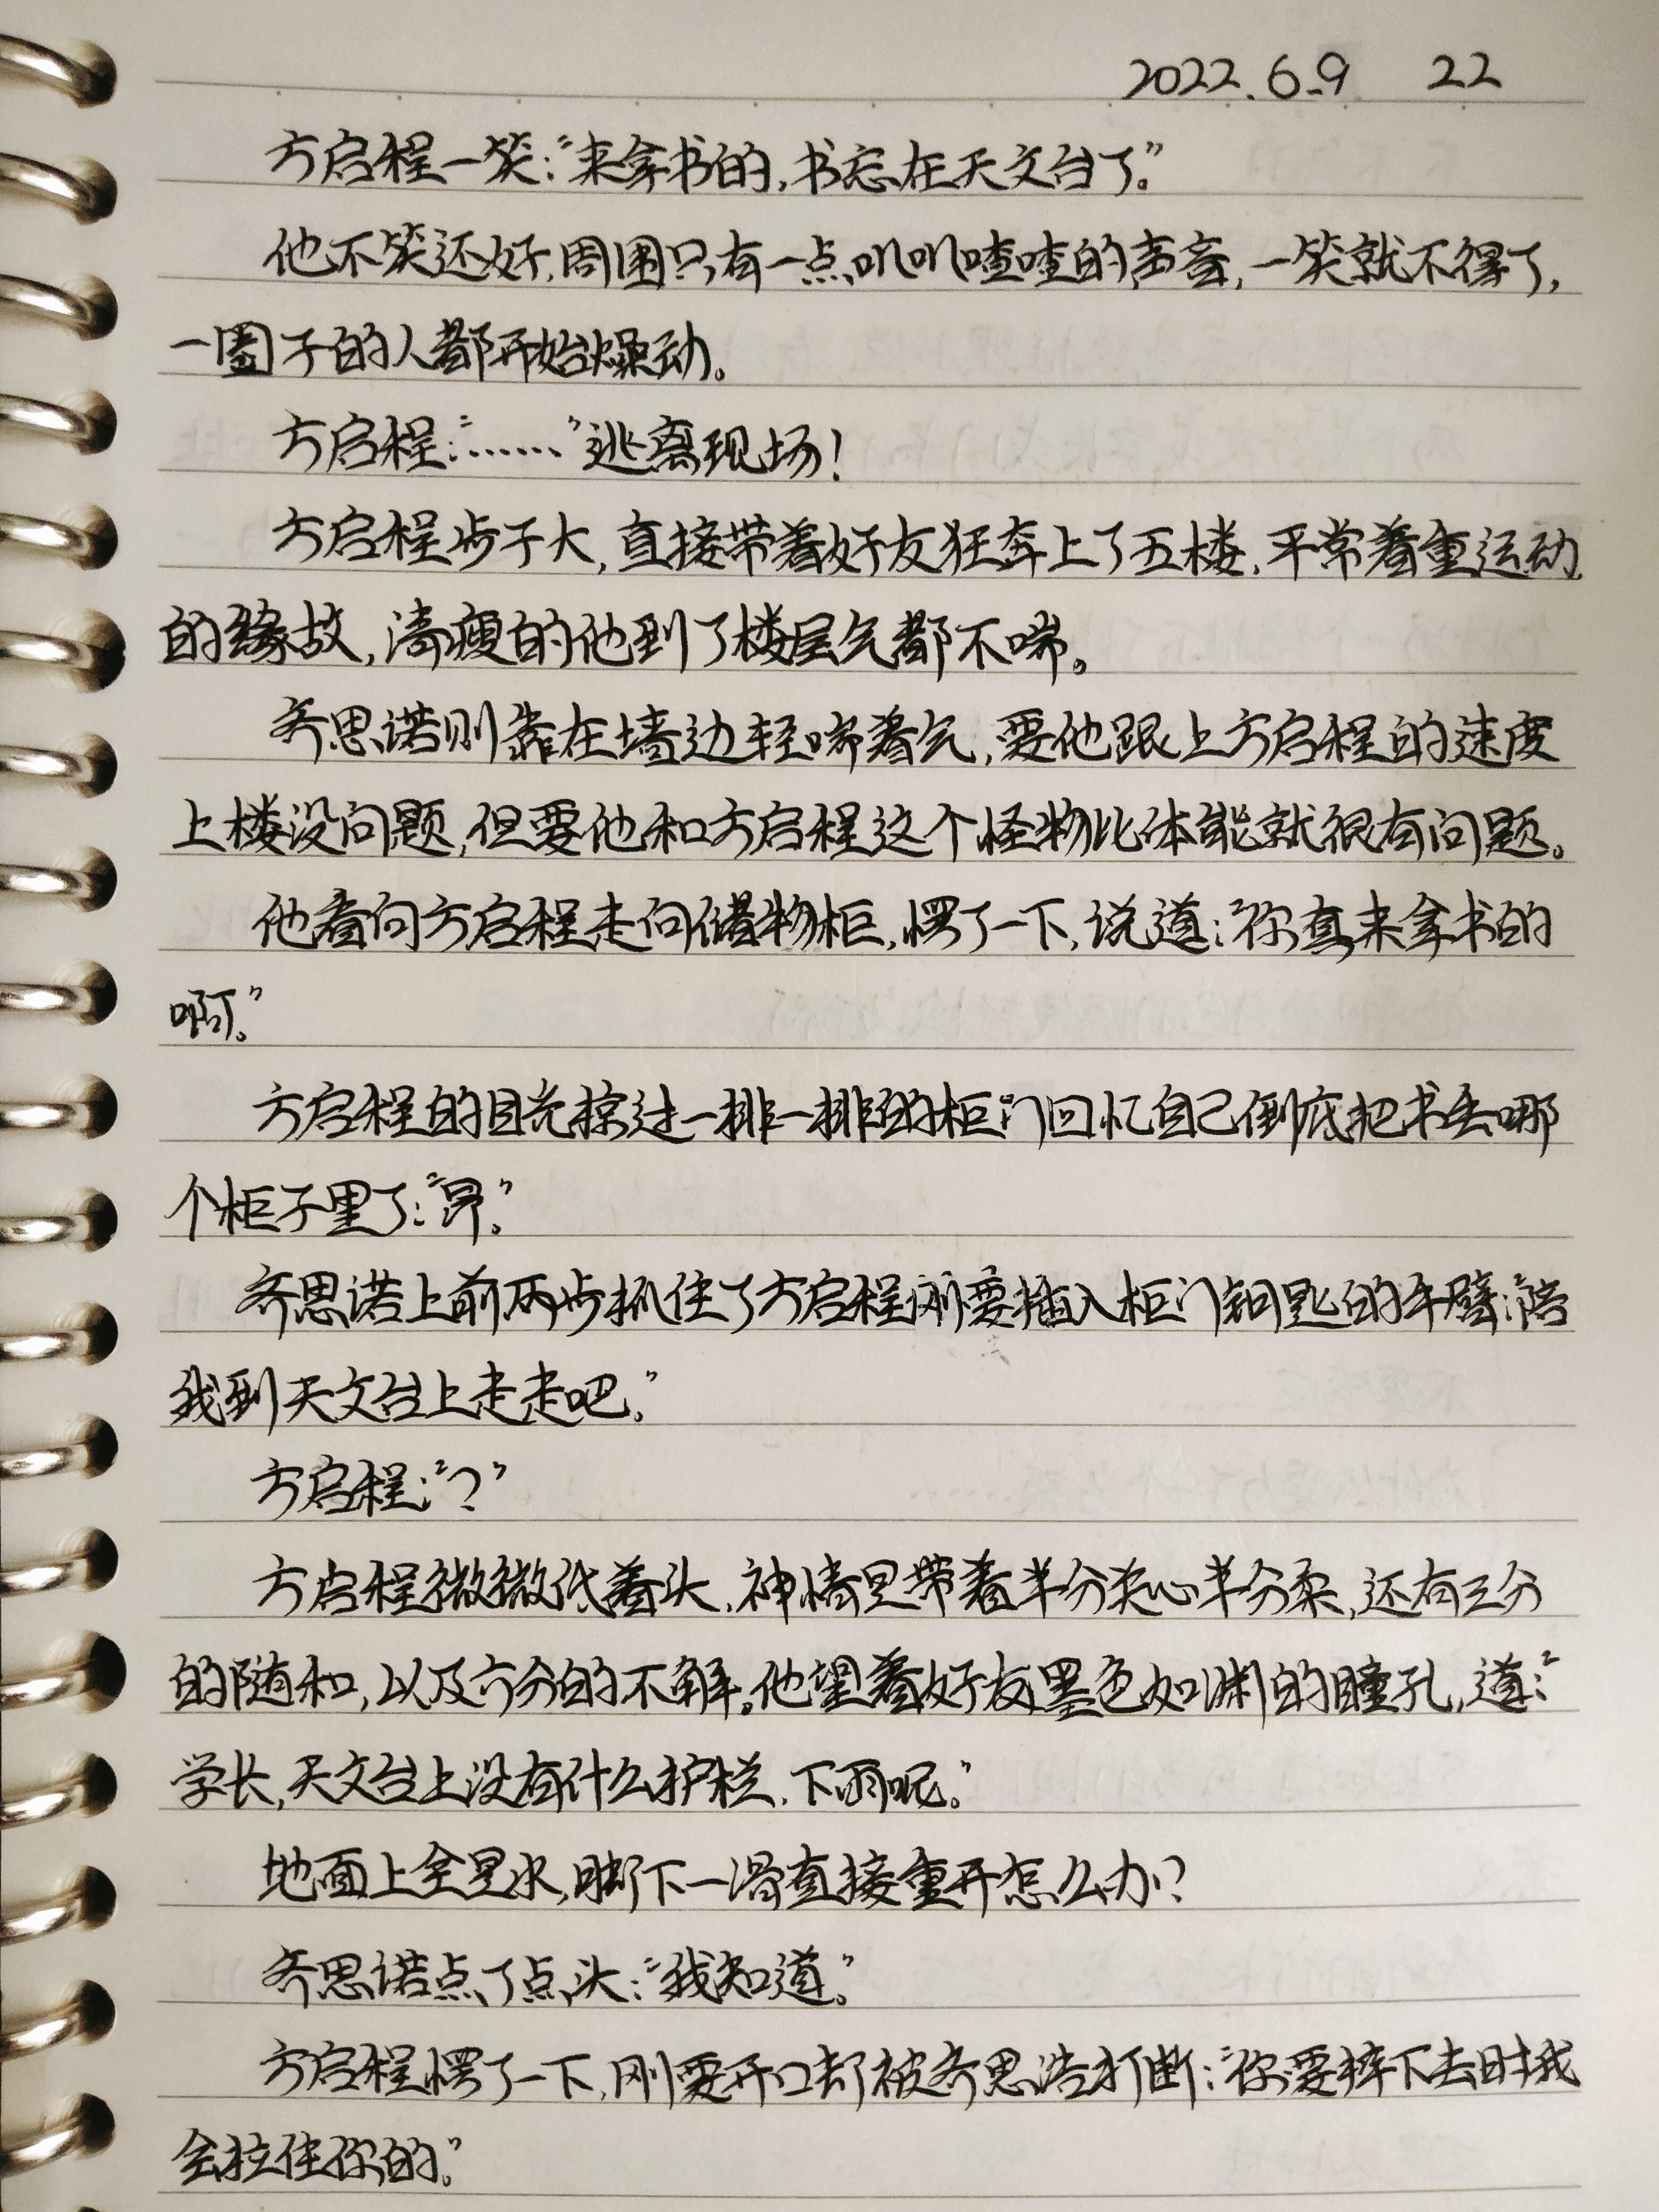 2022.6.9 22
方启程一笑:“来拿书的,书忘在天文台了。”
他不笑还好,周围只有一点叽叽喳喳的声音,一笑就不得了,
一圈子的人都开始燥动。
方启程:“……”逃离现场!
方启程步子大,直接带着好友狂奔上了五楼,平常着重运动
的缘故,清瘦的他到了楼层气都不喘。
齐思诺则靠在墙边轻喘着气,要他跟上方启程的速度
上楼没问题,但要他和方启程这个怪物比体能就很有问题。
他看向方启程走向储物柜,愣了一下,说道:“你真来拿书的
啊。”
方启程的目光掠过一排一排的柜门回忆自己到底把书丢哪
个柜子里了:“昂。”
齐思诺上前两步抓住了方启程刚要插入柜门钥匙的手臂:“陪
我到天文台上走走吧。”
方启程:“?”
方启程微微低着头,神情里带着半分夹心半分柔,还有三分
的随和,以及六分的不解。他望着好友墨色如渊的瞳孔,道:“
学长,天文台上没有什么护栏,下雨呢。”
地面上全是水,脚下一滑直接重开怎么办?
齐思诺点了点头:“我知道。”
方启程愣了一下,刚要开口却被齐思诺打断:“你要摔下去时我
会拉住你的。”